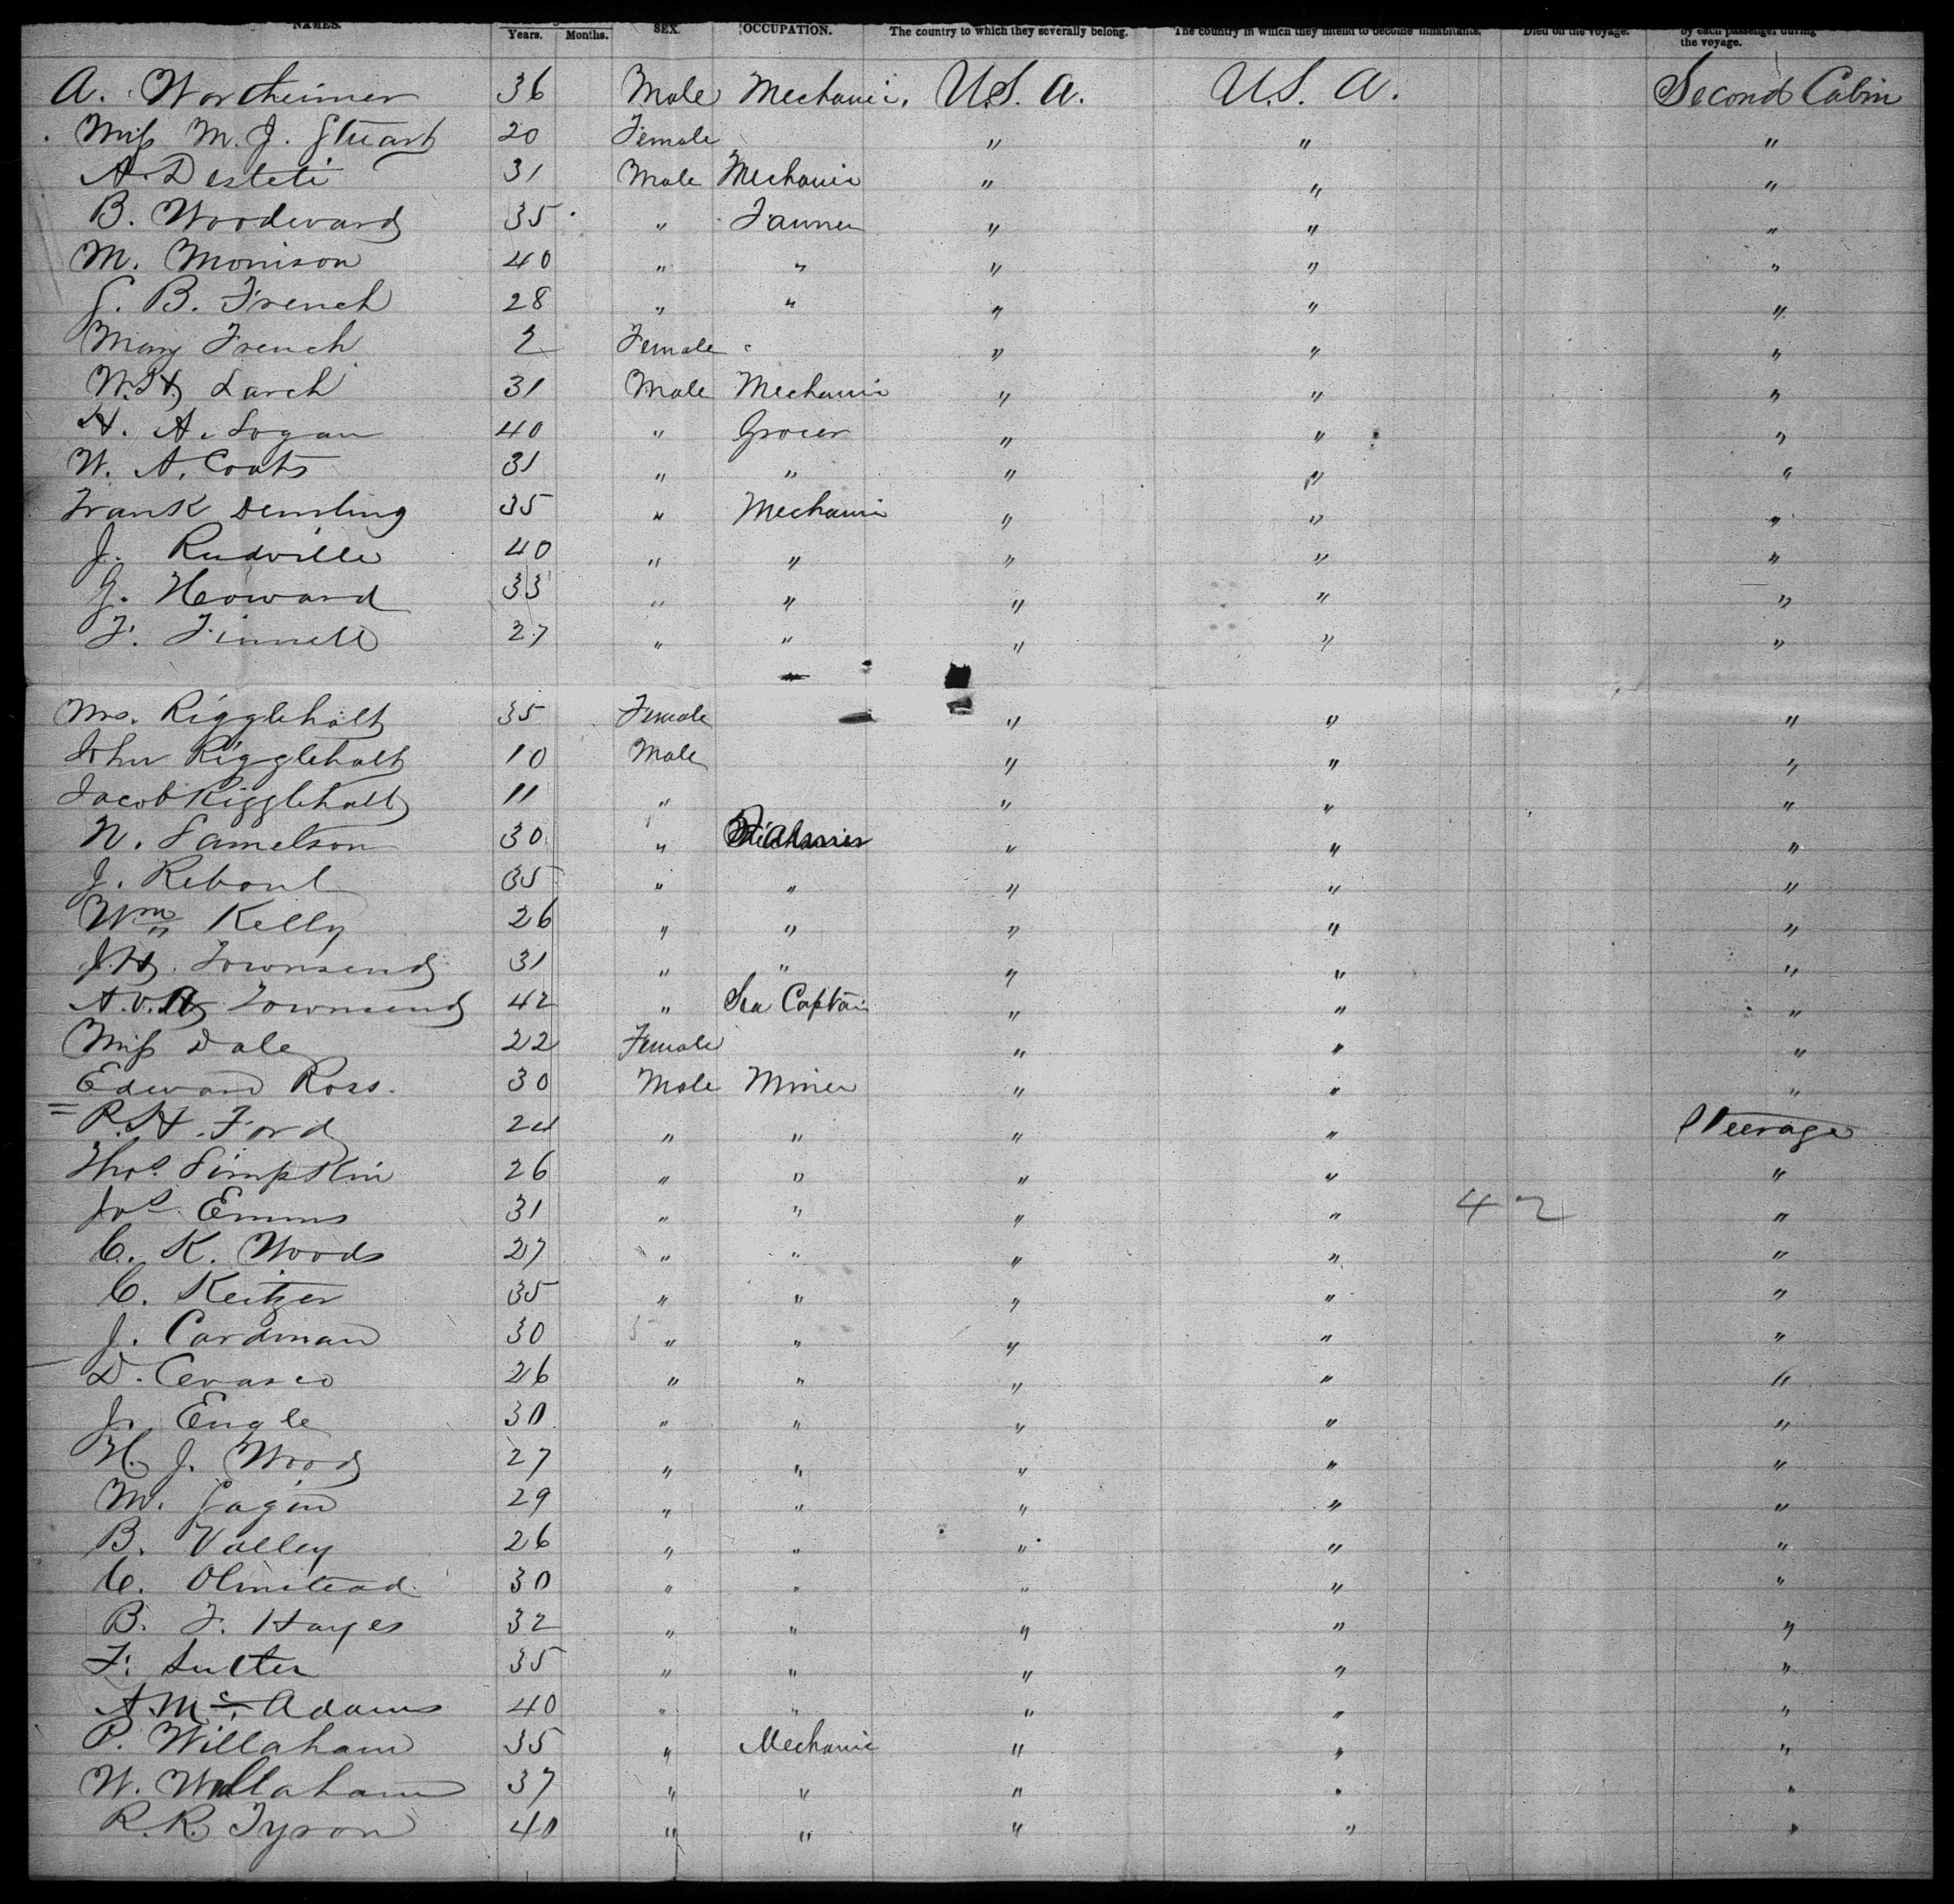 NAMES. Years. Months. SEX. OCCUPATION. The country to which they severally belong. The country in which they intend to become inhabitants. Died on the voyage. by each passenger during
the voyage.
A. Wortheimer 36 Male Mechanic, U.S. A. U.S. A. Second Cabin
Miss M. J. Stuart 20 Female " " "
A. Desteti 31 Male Mechanic " " "
B. Woodward 35 " Farmer " " "
M. Morrison 40 " " " " "
S. B. French 28 " " " " "
Mary French 2 Female " " "
W. H. Larch 31 Male Mechanic " " "
H. A. Logan 40 " Grocer " " "
W. A. Coats 31 " " " " "
Frank Demling 35 " Mechanic " " "
J. Rudville 40 " " " " "
G. Howard 33 " " " " "
F. Finnell 27 " " " " "
Mrs. Riggleholt 35 Female " " "
John Riggleholt 10 Male " " "
Jacob Riggleholt 11 " " " "
N. Samelson 30 " " " "
J. Reboul 35 " " " " "
Wm Kelly 26 " " " " "
J. H. Townsend 31 " " " " "
A. V. H. Townsend 42 " Sea Captain " " "
Miss Dale 22 Female " " "
Edward Ross. 30 Male Miner " " "
R. H. Ford 24 " " " " Steerage
Thos Simpkin 26 " " " " "
Jos Emms 31 " " " " 42 "
C. K. Woods 27 " " " " "
C. Keitzer 35 " " " " "
J. Cardman 30 " " " " "
D. Cevasco 26 " " " " "
J. Engle 30 " " " " "
H. J. Wood 27 " " " " "
M. Gagin 29 " " " " "
B. Valley 26 " " " " "
C. Olmstead 30 " " " " "
B. F. Hayes 32 " " " " "
F. Sulter 35 " " " " "
A. Mc Adams 40 " " " " "
P. Willaham 35 " Mechanic " " "
W. Willaham 37 " " " " "
R. R. Tyson 40 " " " " "